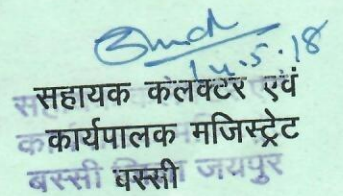 14.5.18
सहायक कलक्टर एवं
कार्यपालक मजिस्ट्रेट
बस्सी जिला जयपुर
बस्सी